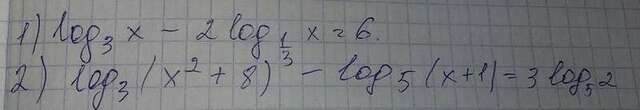 1) log₃ x − 2 log_{1/3} x = 6.
2) log₃(x² + 8) − log₅(x+1) = 3 log₅ 2